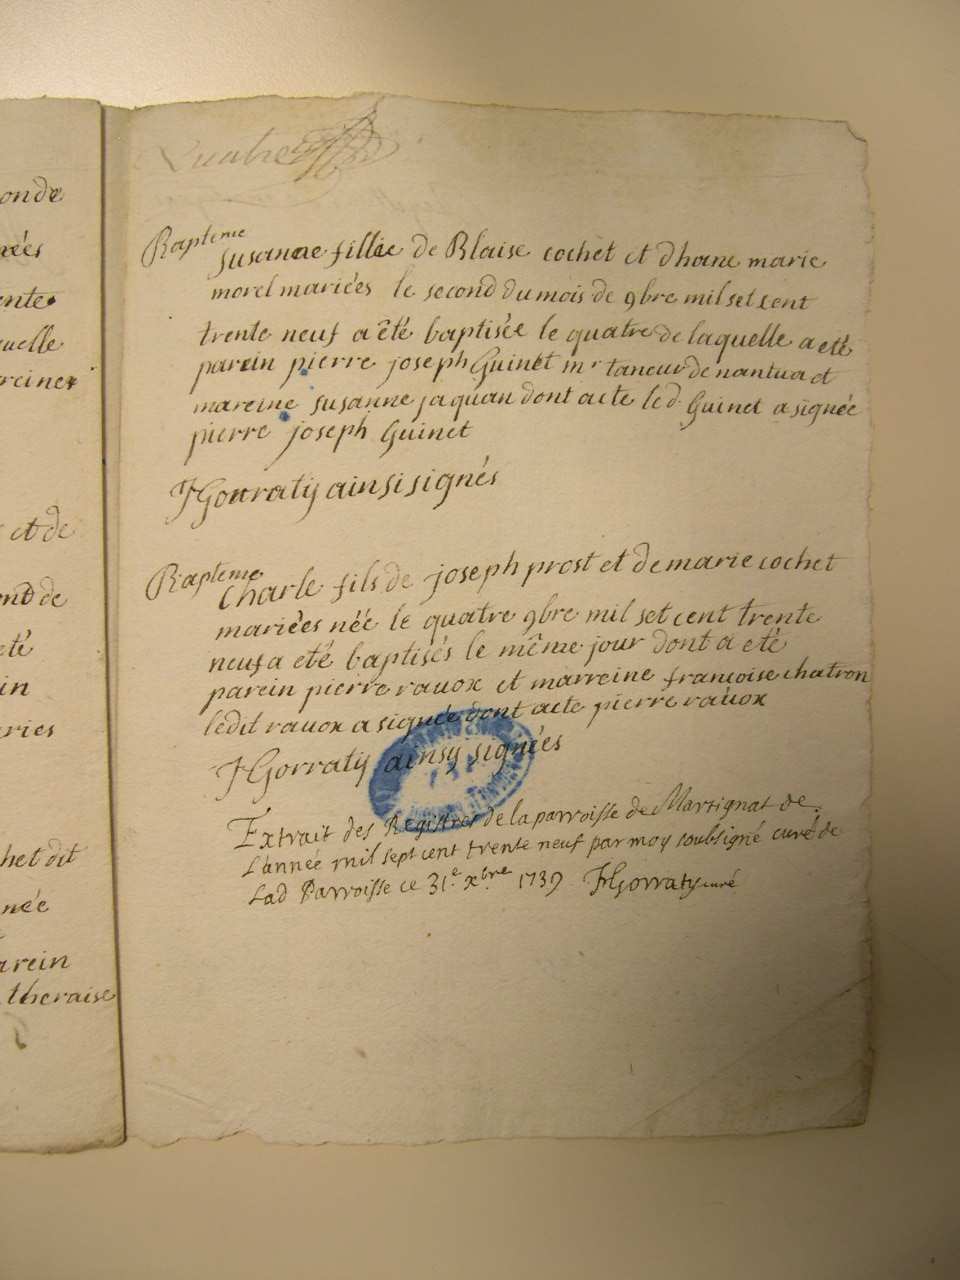 onde
nées
ente
quelle
reine
et de
ond de
eté
in
aries
het dit
née
arein
theraise
Quatre
Bapteme
susanne fillie de Blaise cochet et dhane marie
morel mariées le second du mois de 9bre mil set cent
trente neuf a été baptisée le quatre de laquelle a eté
parein pierre joseph Guinet mr taneur de nantua et
mareine susanne jaquan dont acte led. Guinet a signée
pierre joseph Guinet
Gorratij ainsi signés
Bapteme
Charle fils de joseph prost et de marie cochet
mariées née le quatre 9bre mil set cent trente
neuf a eté baptisés le même jour dont a eté
parein pierre ravox et marreine françoise chatron
ledit ravox a signée dont acte pierre ravox
Gorratij ainsy signées
Extrait des Registres de la parroisse de Martignat de
L'année mil sept cent trente neuf par moy soubsigné curé de
Lad Parroisse ce 31e xbre 1739 Gorraty curé